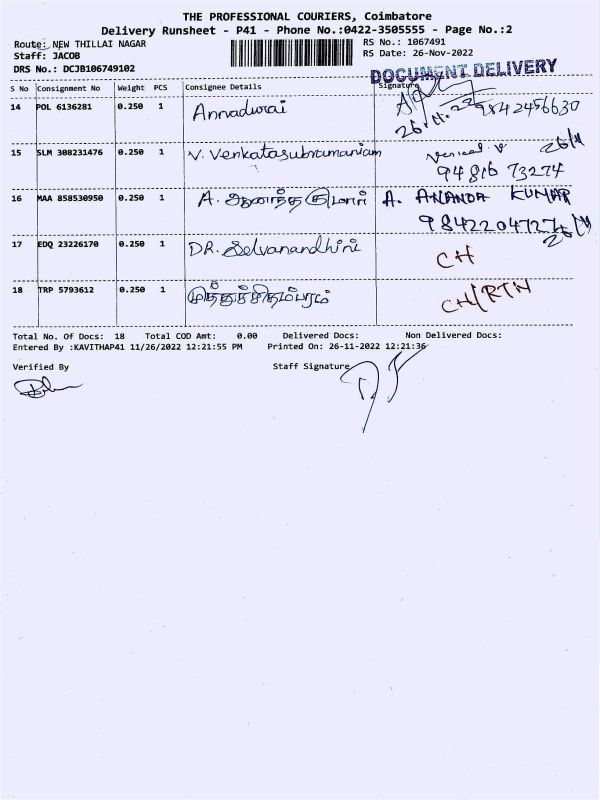 THE PROFESSIONAL COURIERS, Coimbatore
Delivery Runsheet - P41 - Phone No.:0422-3505555 - Page No.:2
Route: NEW THILLAI NAGAR RS No.: 1067491
Staff: JACOB RS Date: 26-Nov-2022
DRS No.: DCJB106749102 DOCUMENT DELIVERY
S No Consignment No Weight PCS Consignee Details Signature
14 POL 6136281 0.250 1 Annadurai 26.11.22 9842456630
15 SLM 308231476 0.250 1 V. Venkatasubramaniam 26/11
94816 73274
16 MAA 858530950 0.250 1 A. ஆனந்த குமார் A. ANANDA KUMAR
9842204727 26/11
17 EDQ 23226170 0.250 1 DR. Selvanandhini CH
18 TRP 5793612 0.250 1 முத்துச்சிதம்பரம் CH/RTN
Total No. Of Docs: 18 Total COD Amt: 0.00 Delivered Docs: Non Delivered Docs:
Entered By :KAVITHAP41 11/26/2022 12:21:55 PM Printed On: 26-11-2022 12:21:36
Verified By Staff Signature